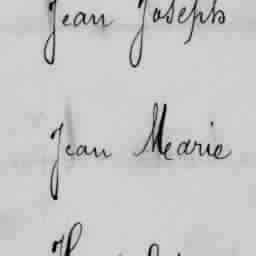 Jean Joseph
Jean Marie